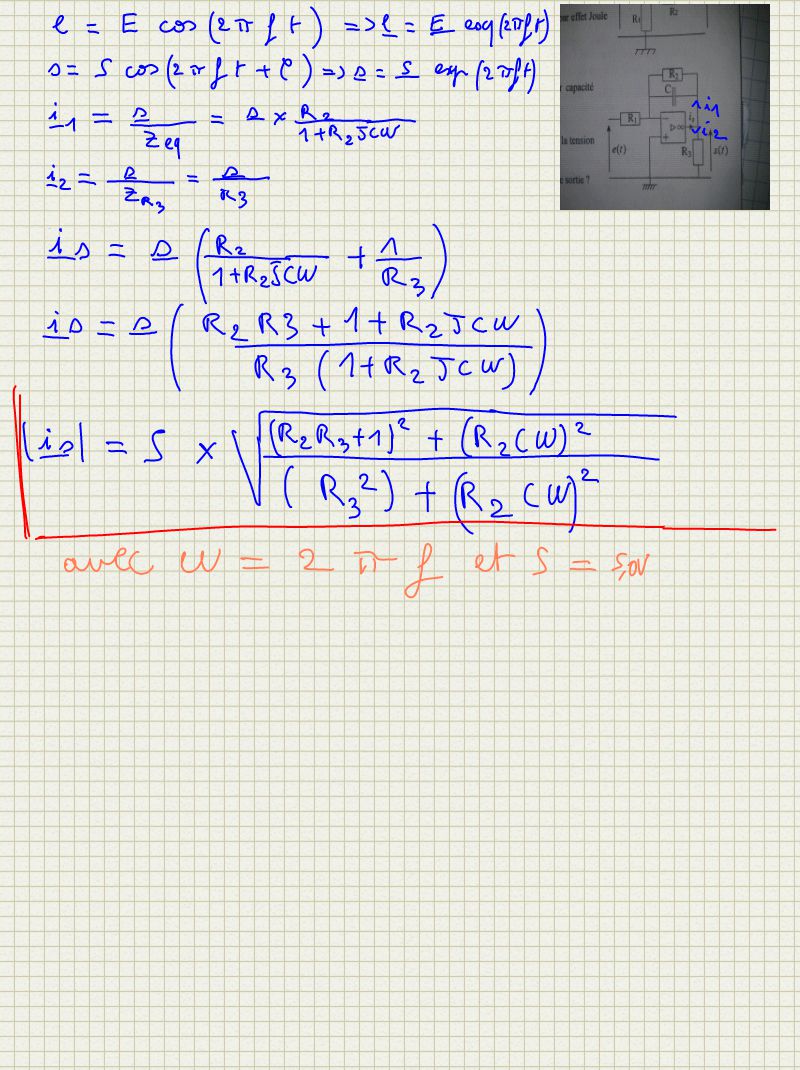 e = E cos(2πft) => e = E exp(2πft)
s = S cos(2πft + φ) => s = S exp(2πft)
i1 = s/Zeq = s × R2/(1+R2JCW)
i2 = s/ZR3 = s/R3
is = s (R2/(1+R2JCW) + 1/R3)
is = s ((R2R3 + 1 + R2JCW)/(R3(1+R2JCW)))
|is| = S × √(((R2R3+1)² + (R2CW)²)/((R3²) + (R2CW)²))
avec W = 2πf et S = 5,0V
effet Joule
R1
R2
capacité
R2
C
R1
i1
i2
la tension
e(t)
R3
s(t)
sortie ?